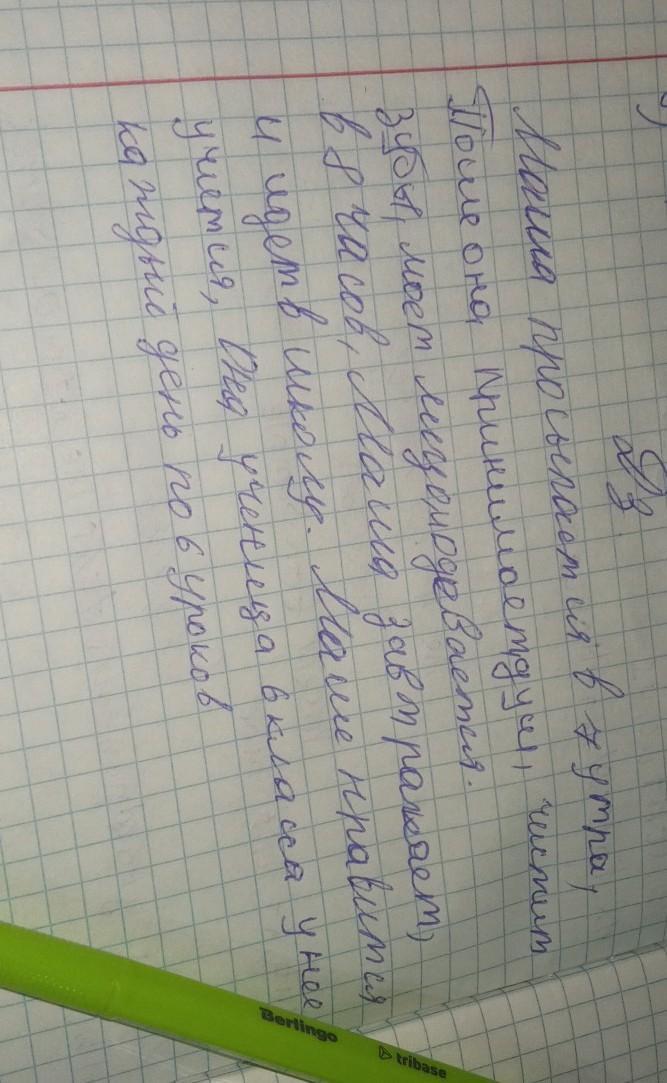 Дз
Маша просыпается в 7 утра,
После она принимаетдуш, чистит
зубы, моет лицоиодевается.
в 8 часов, Маша завтракает,
и идет в школу. Маше нравится
учится, Она ученица 6 класса у нее
каждый день по 6 уроков
Berlingo
tribase